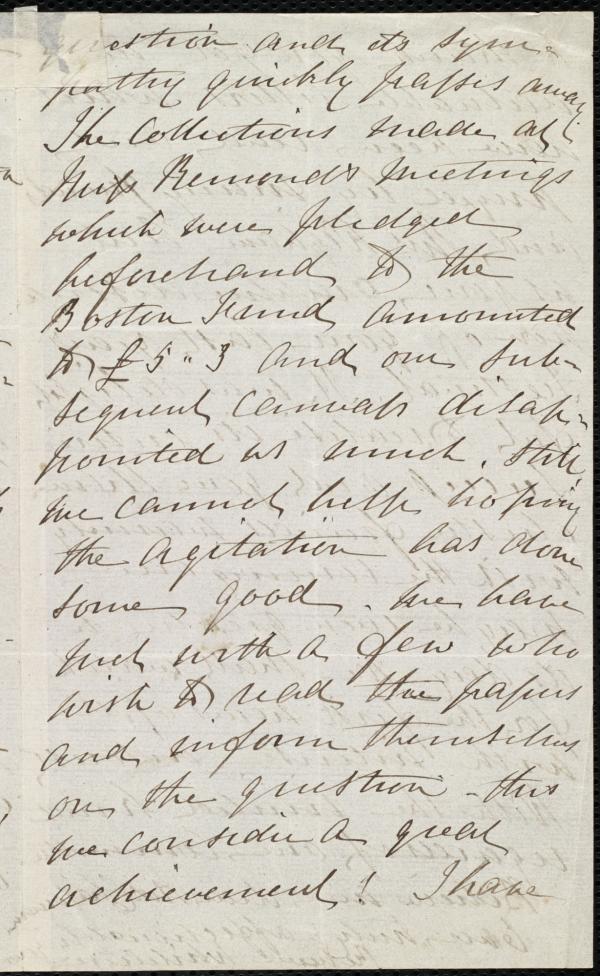 question and its sym-
pathy quickly passes away.
The Collections made at
Miss Remond's Meetings
which were pledged
beforehand to the
Boston Fund amounted
to £5..3 and our sub-
sequent canvass disap-
pointed us much. Still
we cannot help hoping
the agitation has done
some good. We have
met with a few who
wish to read the papers
and inform themselves
on the question - this
we consider a great
achievement! I have